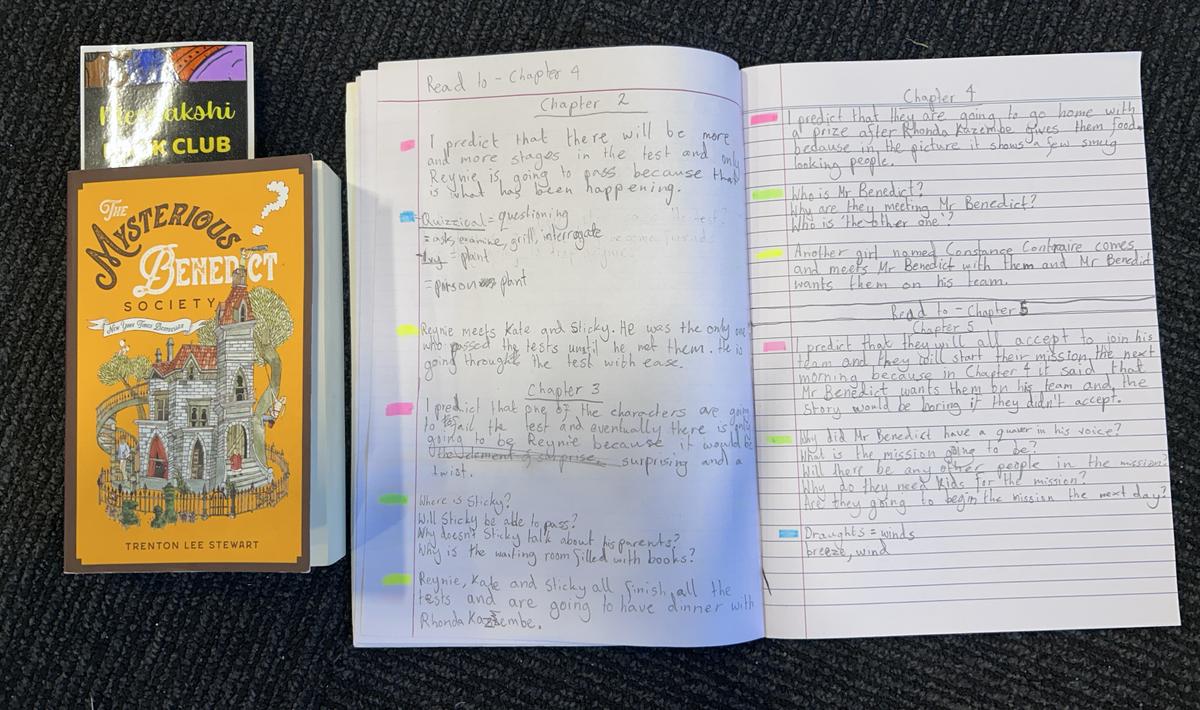 Meenakshi
BOOK CLUB
THE
MYSTERIOUS
BENEDICT
SOCIETY
New York Times Bestseller
TRENTON LEE STEWART
Read to - Chapter 4
Chapter 2
I predict that there will be more
and more stages in the test and only
Reynie is going to pass because that
is what has been happening.
Quizzical = questioning
= asks, examine, grill, interrogate
Ivy = plant
= poison plant
Reynie meets Kate and Sticky. He was the only one
who passed the tests until he met them. He is
going through the test with ease.
Chapter 3
I predict that one of the characters are going
to fail the test and eventually there is only
going to be Reynie because it would be
the element of surprise. surprising and a
twist.
Where is Sticky?
Will Sticky be able to pass?
Why doesn't Sticky talk about his parents?
Why is the waiting room filled with books?
Reynie, Kate and Sticky all finish all the
tests and are going to have dinner with
Rhonda Kazembe.
Chapter 4
I predict that they are going to go home with
a prize after Rhonda Kazembe gives them food
because in the picture it shows a few smug
looking people.
Who is Mr Benedict?
Why are they meeting Mr Benedict?
Who is 'the other one'?
Another girl named Constance Contraire comes
and meets Mr Benedict with them and Mr Benedict
wants them on his team.
Read to - Chapter 5
Chapter 5
I predict that they will all accept to join his
team and they will start their mission the next
morning because in Chapter 4 it said that
Mr Benedict wants them on his team and the
story would be boring if they didn't accept.
Why did Mr Benedict have a quaver in his voice?
What is the mission going to be?
Will there be any other people in the mission?
Why do they need kids for the mission?
Are they going to begin the mission the next day?
Draughts = winds
breeze, wind